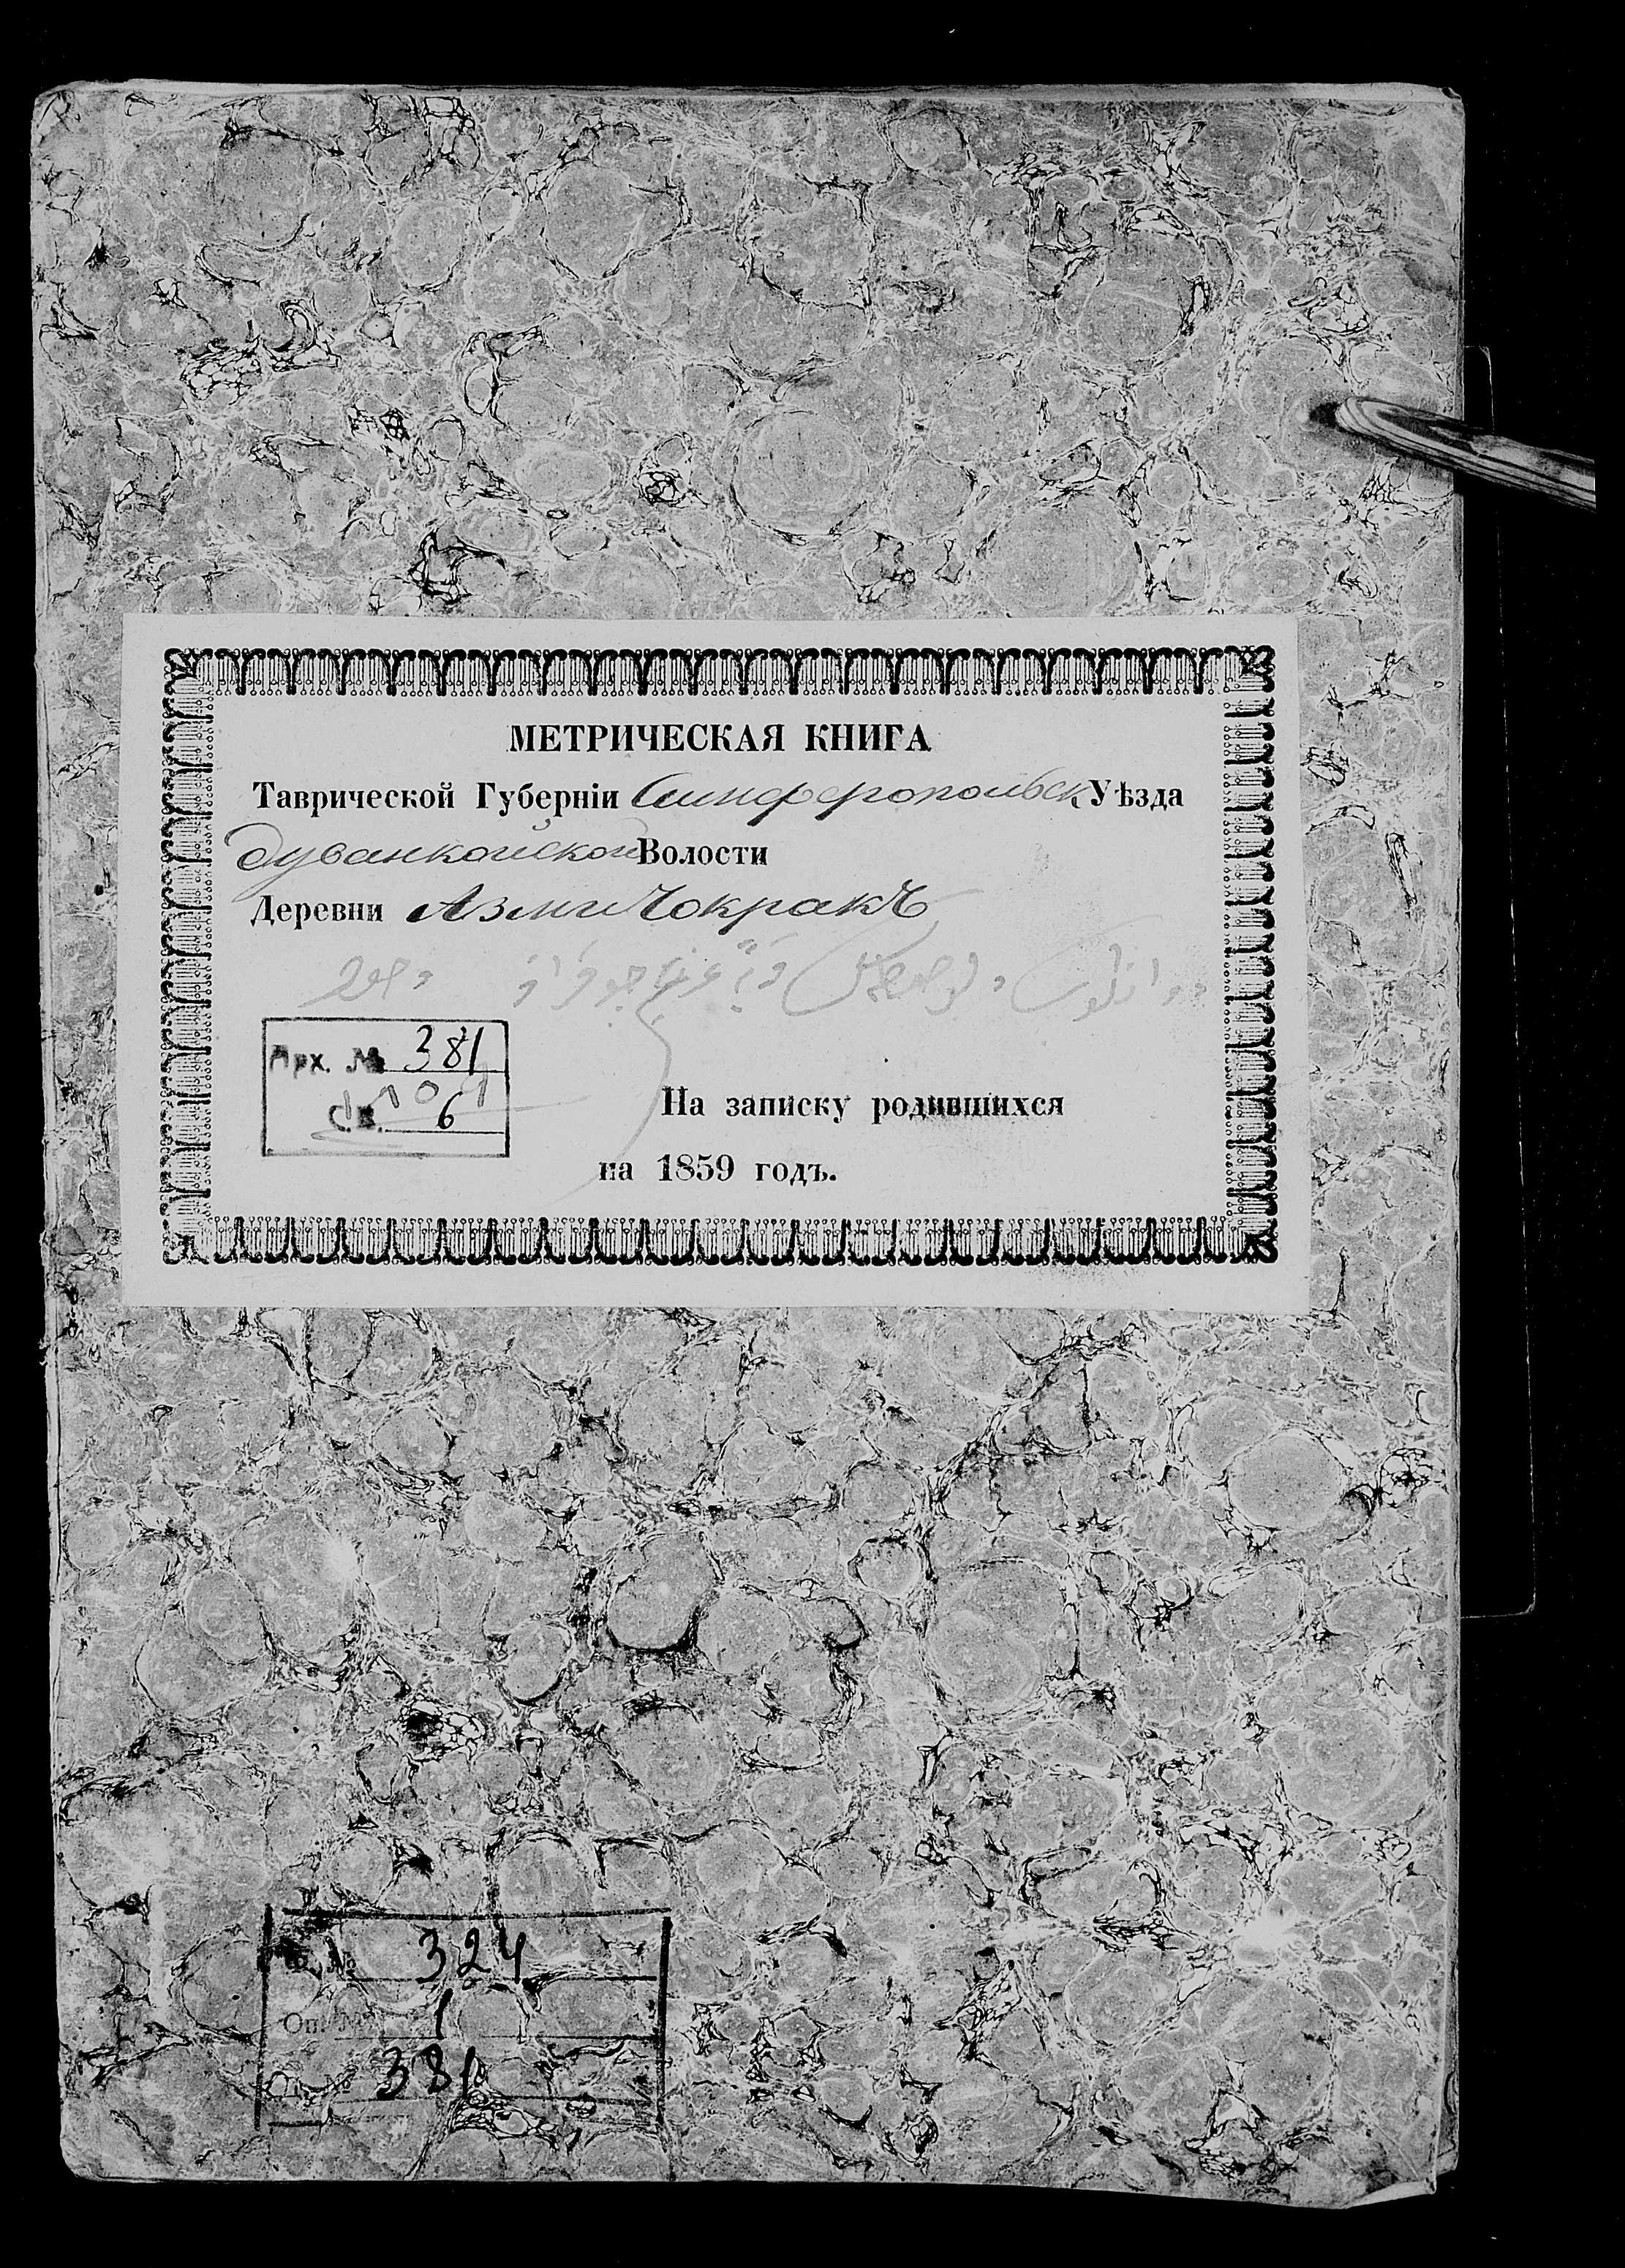 МЕТРИЧЕСКАЯ КНИГА
Таврической Губерніи Симферопольск Уѣзда
дуванкойской Волости
Деревни Азми Чокракъ
Арх. № 381
Св. 6
На записку родившихся
на 1859 годъ.
Ф. № 324
Оп. № 1
№ 381